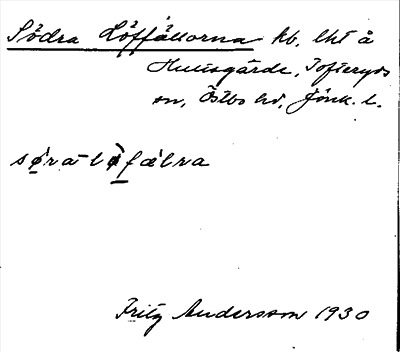 Södra Löffällorna kb. lht å
Hultsgärde, Tofteryds
sn, Östbo hd, Jönk. l.
søra-løfælra
Fritz Andersson 1930